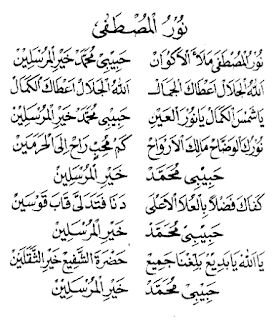 نُوْرُ الْمُصْطَفٰى
نُوْرُ الْمُصْطَفٰى مَلَأَ الْأَكْوَانْ حَبِيْبِيْ مُحَمَّدْ خَيْرِ الْمُرْسَلِيْنْ
اَللهُ الْجَلَالْ اَعْطَاكَ الْجَمَالْ اَللهُ الْجَلَالْ اَعْطَاكَ الْكَمَالْ
يَا شَمْسَ الْكَمَالْ يَا نُوْرَ الْعَيْنْ حَبِيْبِيْ مُحَمَّدْ خَيْرِ الْمُرْسَلِيْنْ
نُوْرُكَ الْوَضَّاحْ مَالِكَ الْاَرْوَاحْ كَمْ مُحِبٍّ رَاحْ اِلَى الْحَرَمَيْنْ
حَبِيْبِيْ مُحَمَّدْ خَيْرِ الْمُرْسَلِيْنْ
كَفَاكَ فَضْلًا بِالْعُلَا الْاَعْلٰى دَنَا فَتَدَلّٰى قَابَ قَوْسَيْنْ
حَبِيْبِيْ مُحَمَّدْ خَيْرِ الْمُرْسَلِيْنْ
يَا اَللهُ يَا بَدِيْعْ بَلِّغْنَا جَمِيْعْ حَضْرَةَ الشَّفِيْعْ خَيْرِ الثَّقَلَيْنْ
حَبِيْبِيْ مُحَمَّدْ خَيْرِ الْمُرْسَلِيْنْ